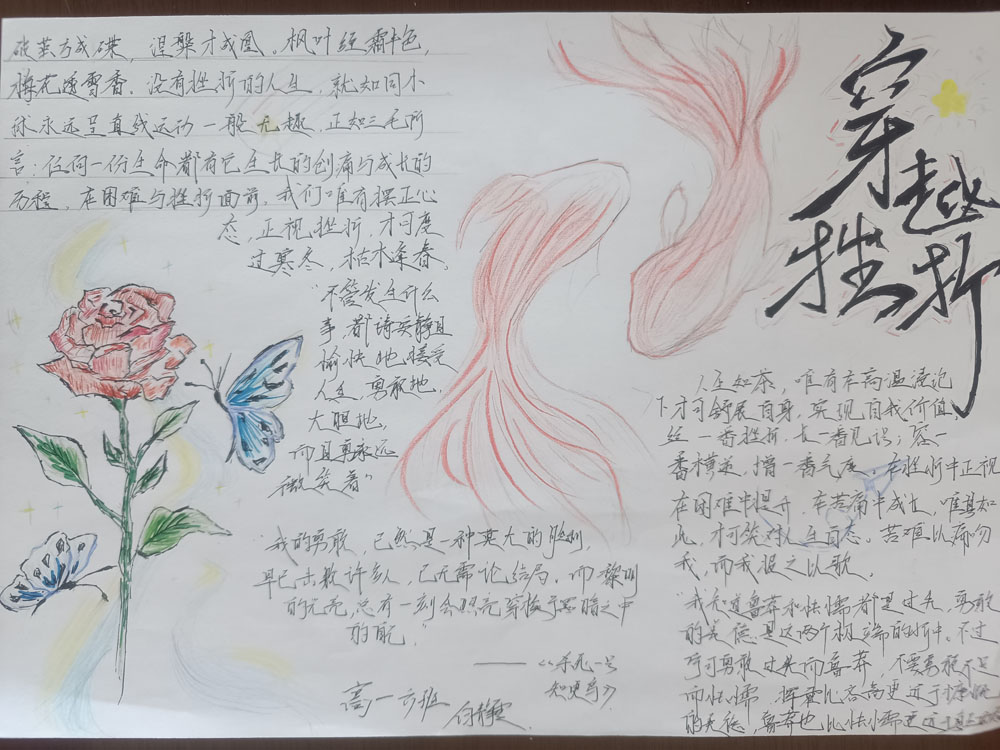 穿越
挫折
破茧方成碟,涅槃才成凰。枫叶经霜丰色,
梅花透雪香。没有挫折的人生,就如同小
球永远呈直线运动一般无趣。正如三毛所
言:任何一份生命都有它生长的创痛与成长的
历程。在困难与挫折面前,我们唯有摆正心
态,正视挫折,才可度
过寒冬,枯木逢春。
"不管发生什么
事,都请安静且
愉快地接受
人生,勇敢地,
大胆地,
而且永远
微笑着"
"我的勇敢,已然是一种莫大的胜利,
早已击败许多人,已无需论结局,而黎明
的光亮,总有一刻会照亮穿梭于黑暗之中
的
"
——《杀死一只
知更鸟》
高一六班
人生如茶,唯有在高温浸泡
下才可舒展自身,实现自我价值。
经一番挫折,长一番见识;容一
番横逆,增一番气度。在挫折中正视
在困难中提升,在苦痛中成长,唯其如
此,才可笑对人生百态。苦难以痛吻
我,而我报之以歌。
"我知道鲁莽和怯懦都是过失,勇敢
的美德是这两个极端的折中。不过
宁可勇敢过头而鲁莽,不要勇敢不足
而怯懦。挥霍比吝啬更近于慷慨
的美德,鲁莽也比怯懦更近于